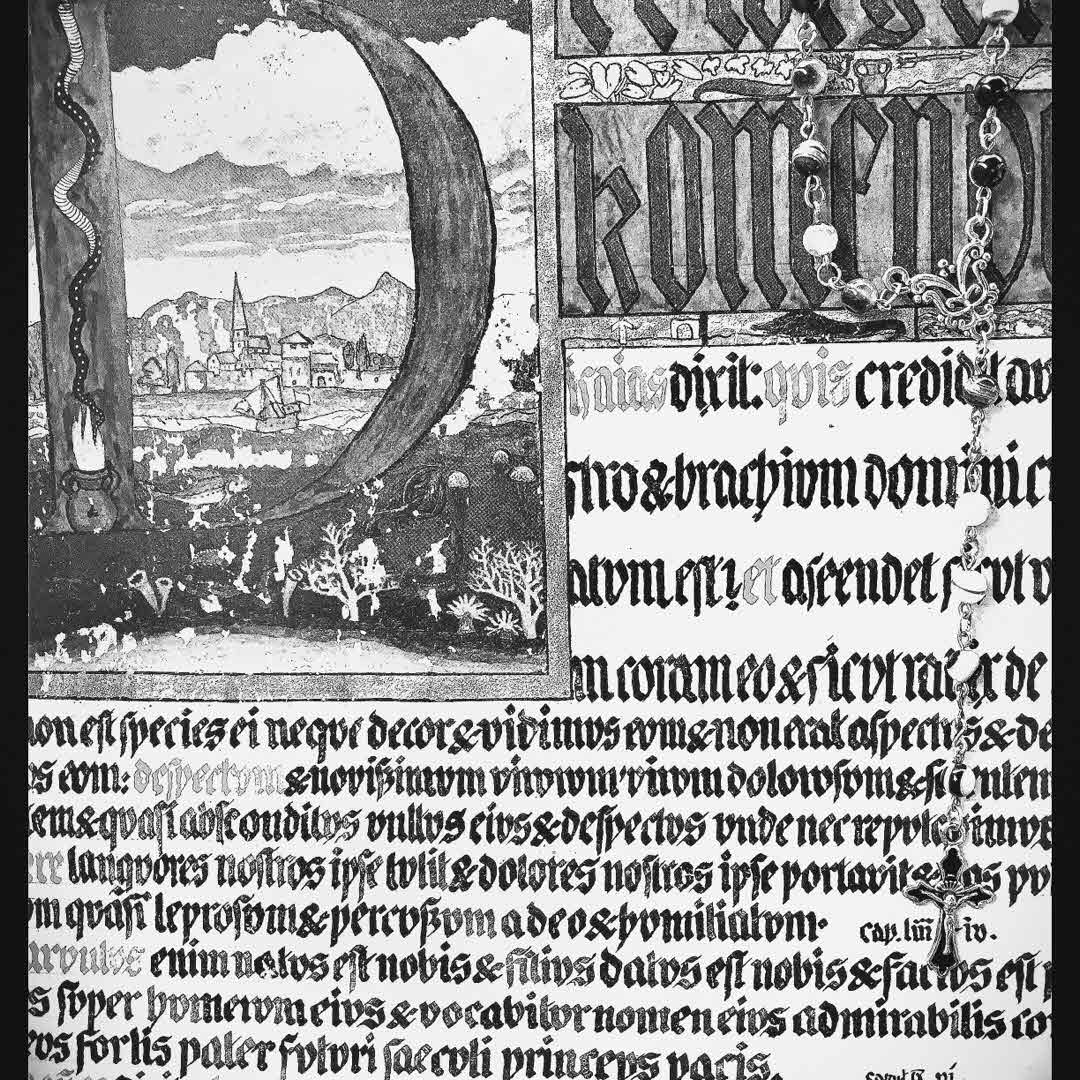 komend
dixit: qvis credidit av
stro & brachivm domini cv
atvm est? et ascendet sicvt v
m coram eo & sicvt radix de
non est species ei neqve decor & vidimvs evm & non erat aspectvs & de
os evm: despectvm & novißimvm virorvm virvm dolorvm & scientem
tem & qvasi absconditvs vvltvs eivs & despectvs vnde nec repvtavimvs
langvores nostros ipse tvlit & dolores nostros ipse portavit & nos pv
om qvasi leprosvm & percvßvm a deo & hvmiliatvm·
cap. liii iv.
arvvlvs enim natvs est nobis & filivs datvs est nobis & factvs est p
s svper hvmervm eivs & vocabitvr nomen eivs admirabilis co
evs fortis pater fvtvri saecvli princeps pacis.